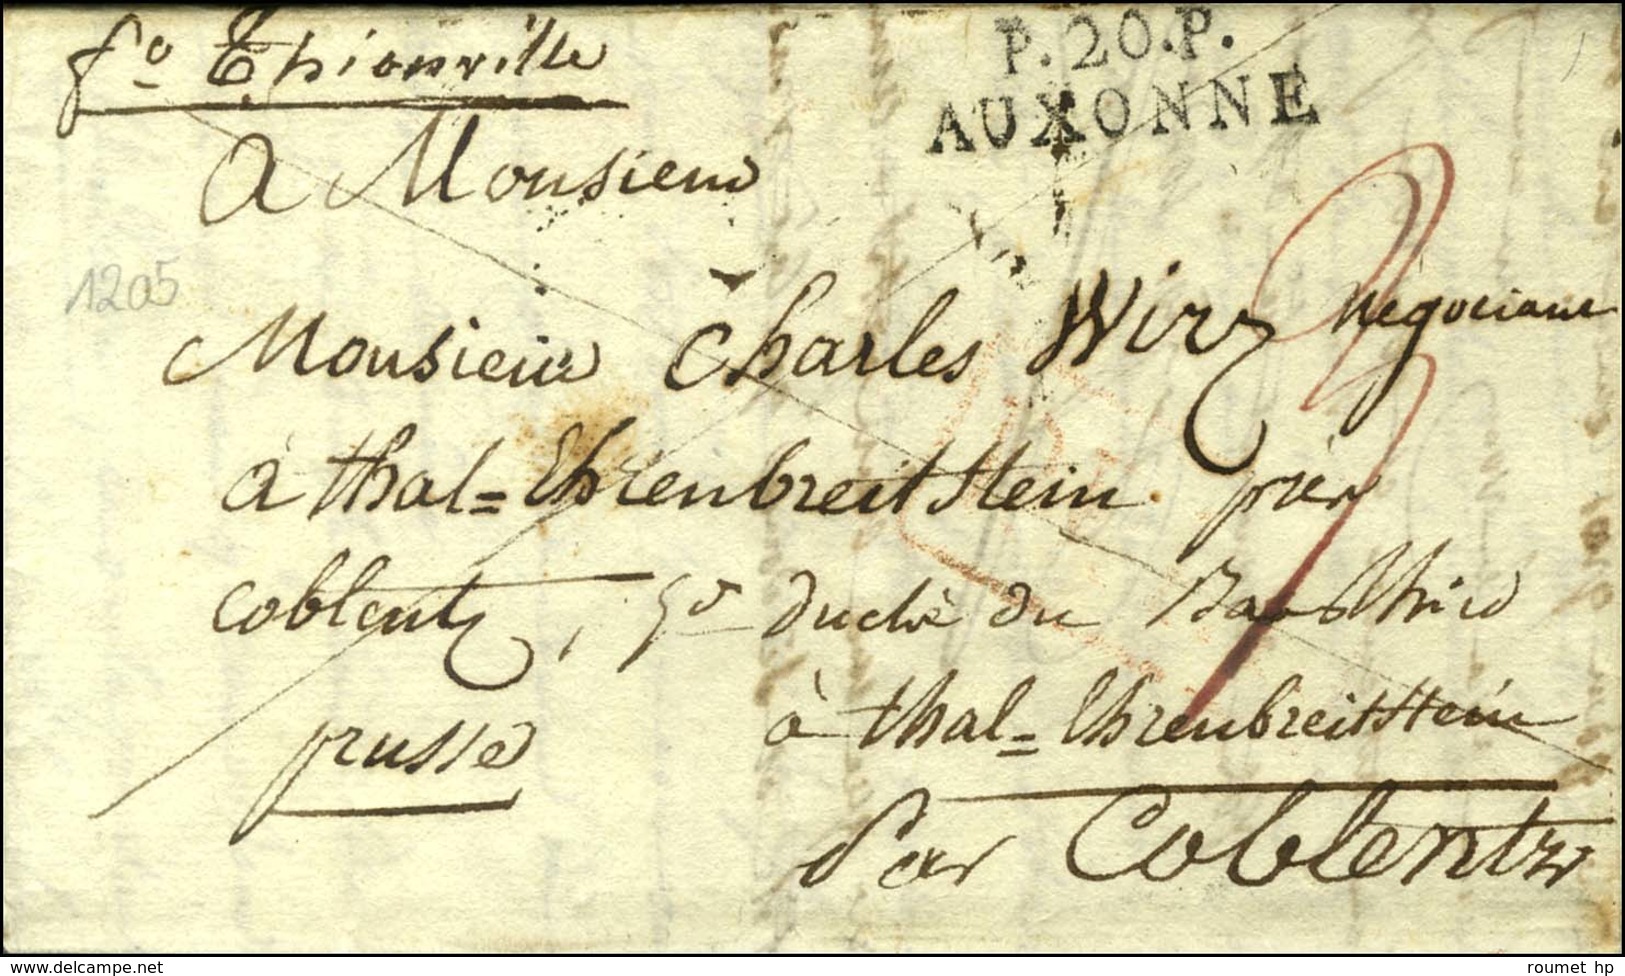 fo Thionville
P.20.P.
AUXONNE
a Monsieur
1205
Monsieur Charles Wirz Negociant
à thal=Ehrenbreitstein près
Coblentz, gd duché du Bas Rhin
prusse
à thal=Ehrenbreitstein
Par Coblentz
roumet hp